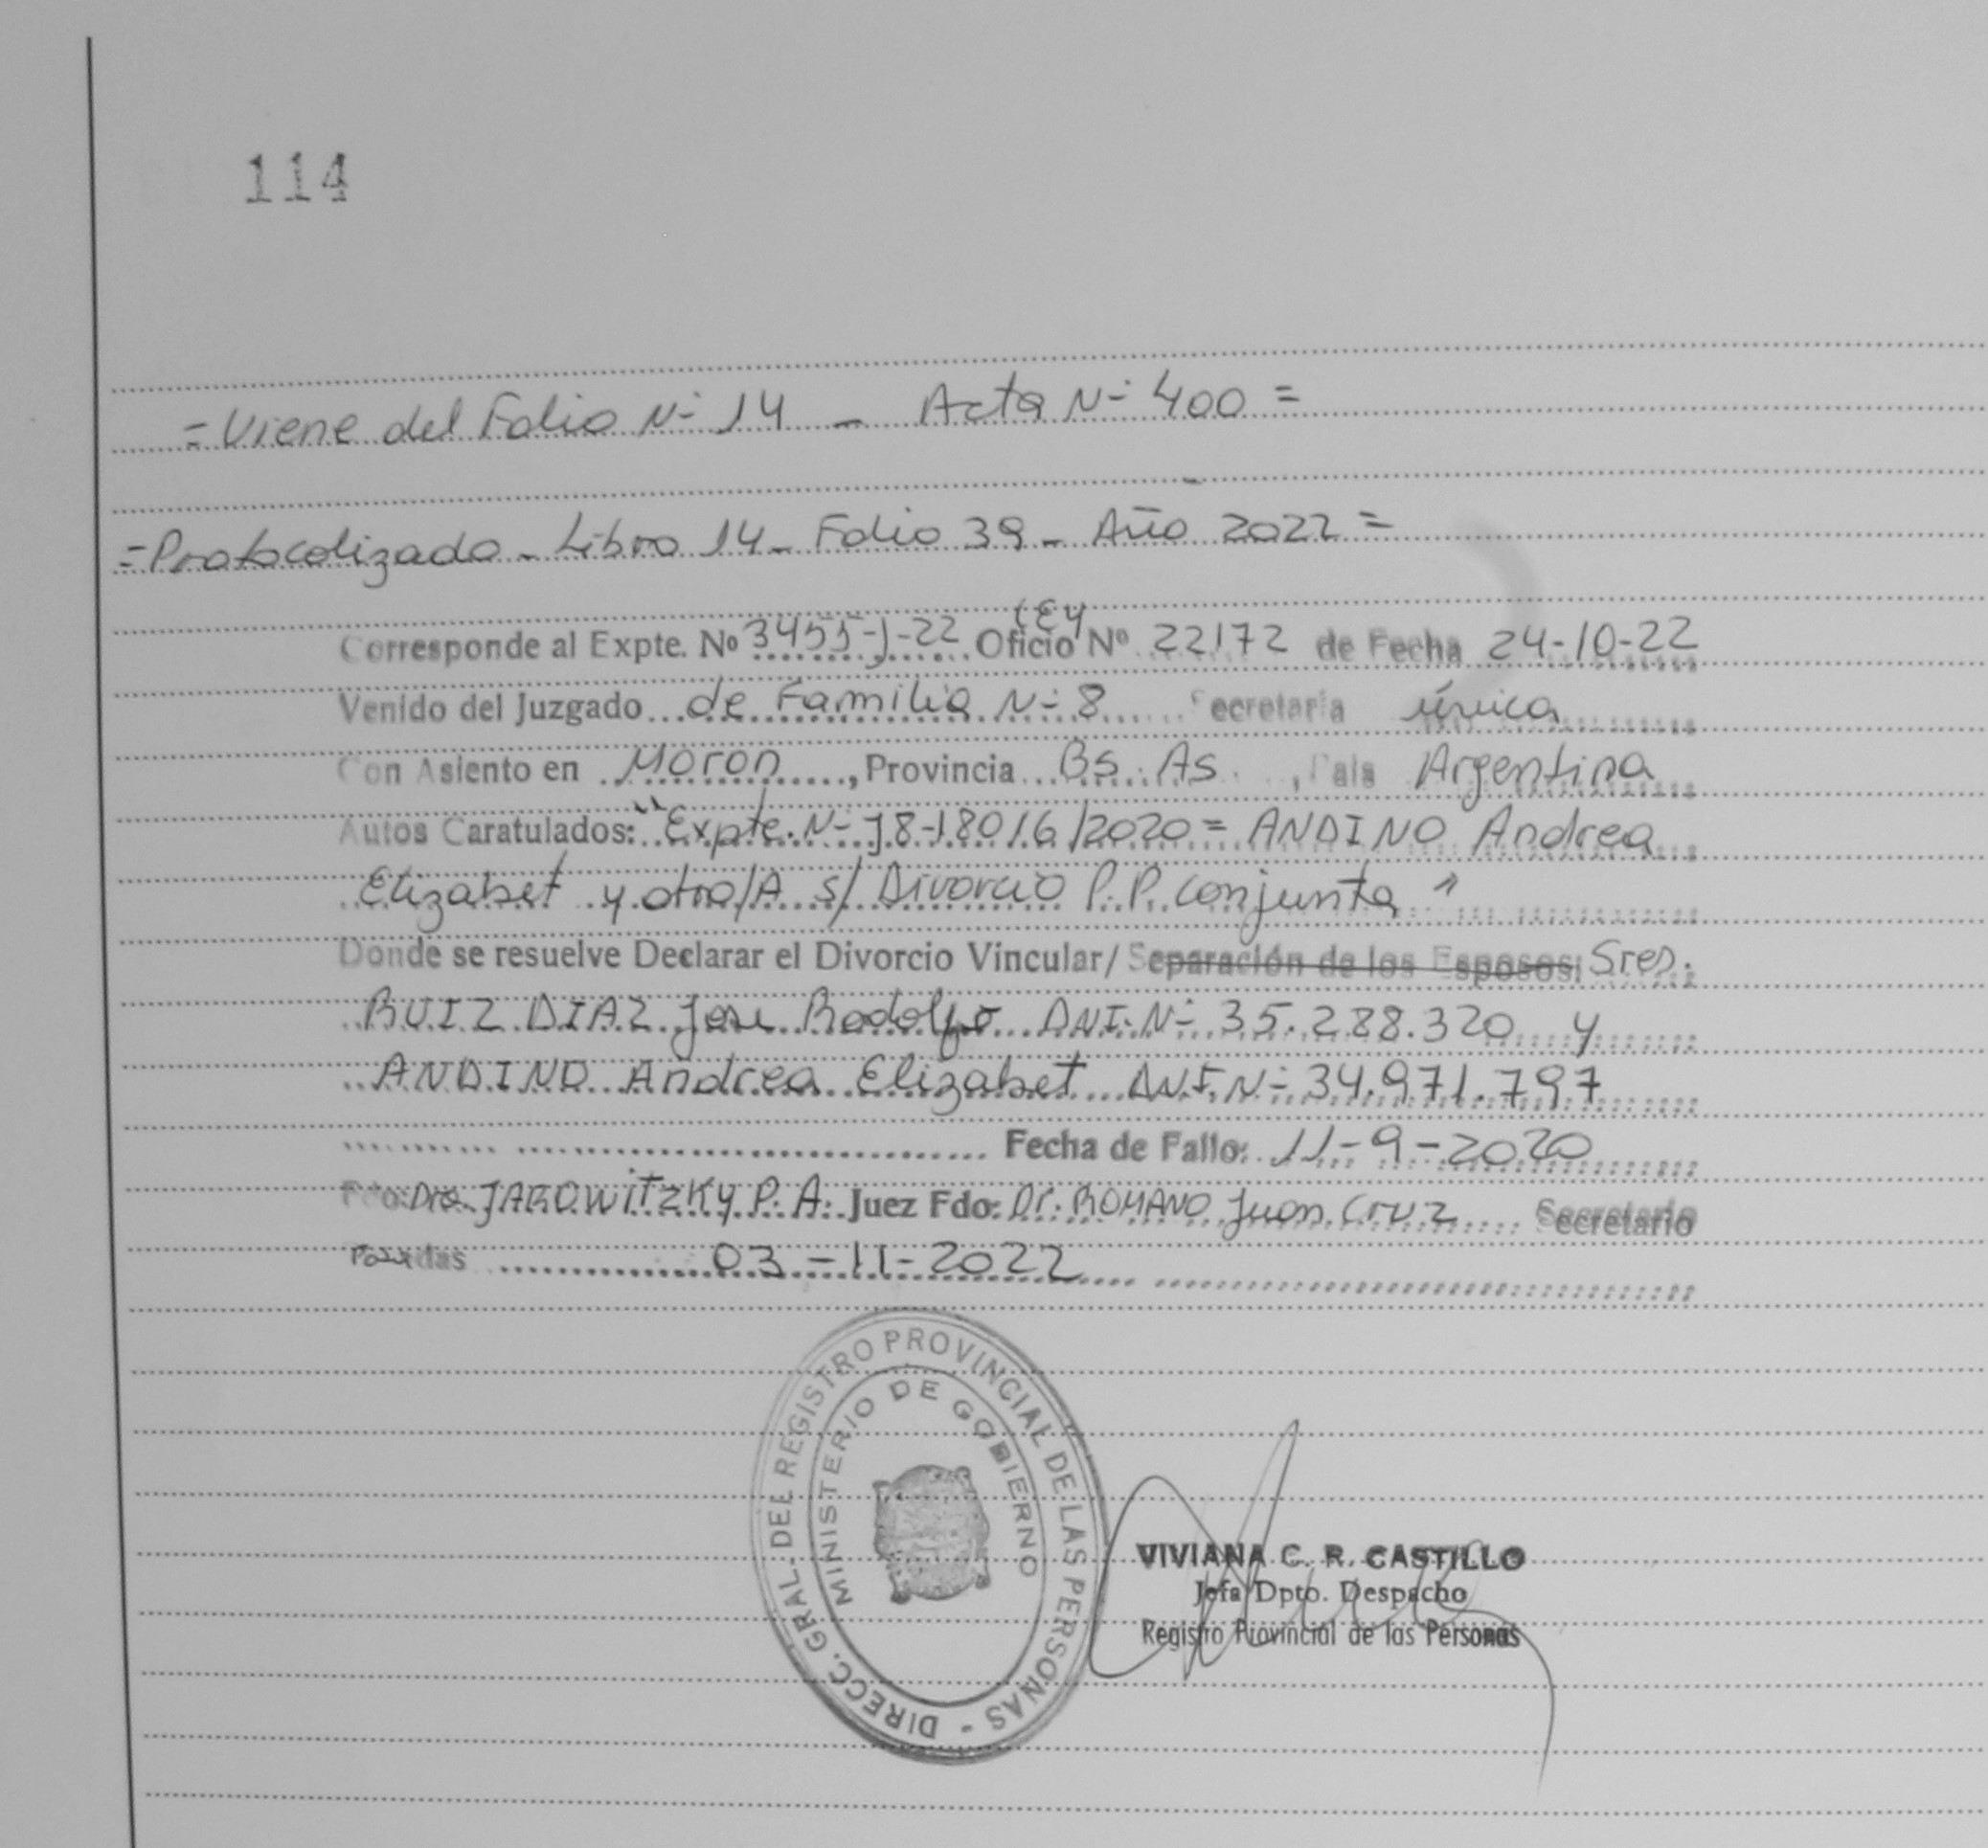 114
=Viene del Folio N- 14 - Acta N- 400 =
=Protocolizado - Libro 14 - Folio 39 - Año 2022 =
LEY
Corresponde al Expte. Nº 3455-J-22 Oficio Nº 22172 de Fecha 24-10-22
Venido del Juzgado de Familia N- 8 Secretaría única
Con Asiento en Moron, Provincia Bs. As., País Argentina
Autos Caratulados: "Expte. N- J8-18016/2020 = ANDINO Andrea
Elizabet y otro/A s/ Divorcio P.P. conjunta"
Donde se resuelve Declarar el Divorcio Vincular/ Separación de los Esposos: Sres.
RUIZ DIAZ Jose Rodolfo DNI. N- 35.288.320 y
ANDINO Andrea Elizabet DNI. N- 34.971.797
Fecha de Fallo: 11-9-2020
Fdo: Dra. JAROWITZKY P. A. Juez Fdo: Dr. ROMANO Juan Cruz Secretario
Posadas 03-11-2022
DIRECC. GRAL. DEL REGISTRO PROVINCIAL DE LAS PERSONAS -
MINISTERIO DE GOBIERNO
VIVIANA C. R. CASTILLO
Jefa Dpto. Despacho
Registro Provincial de las Personas